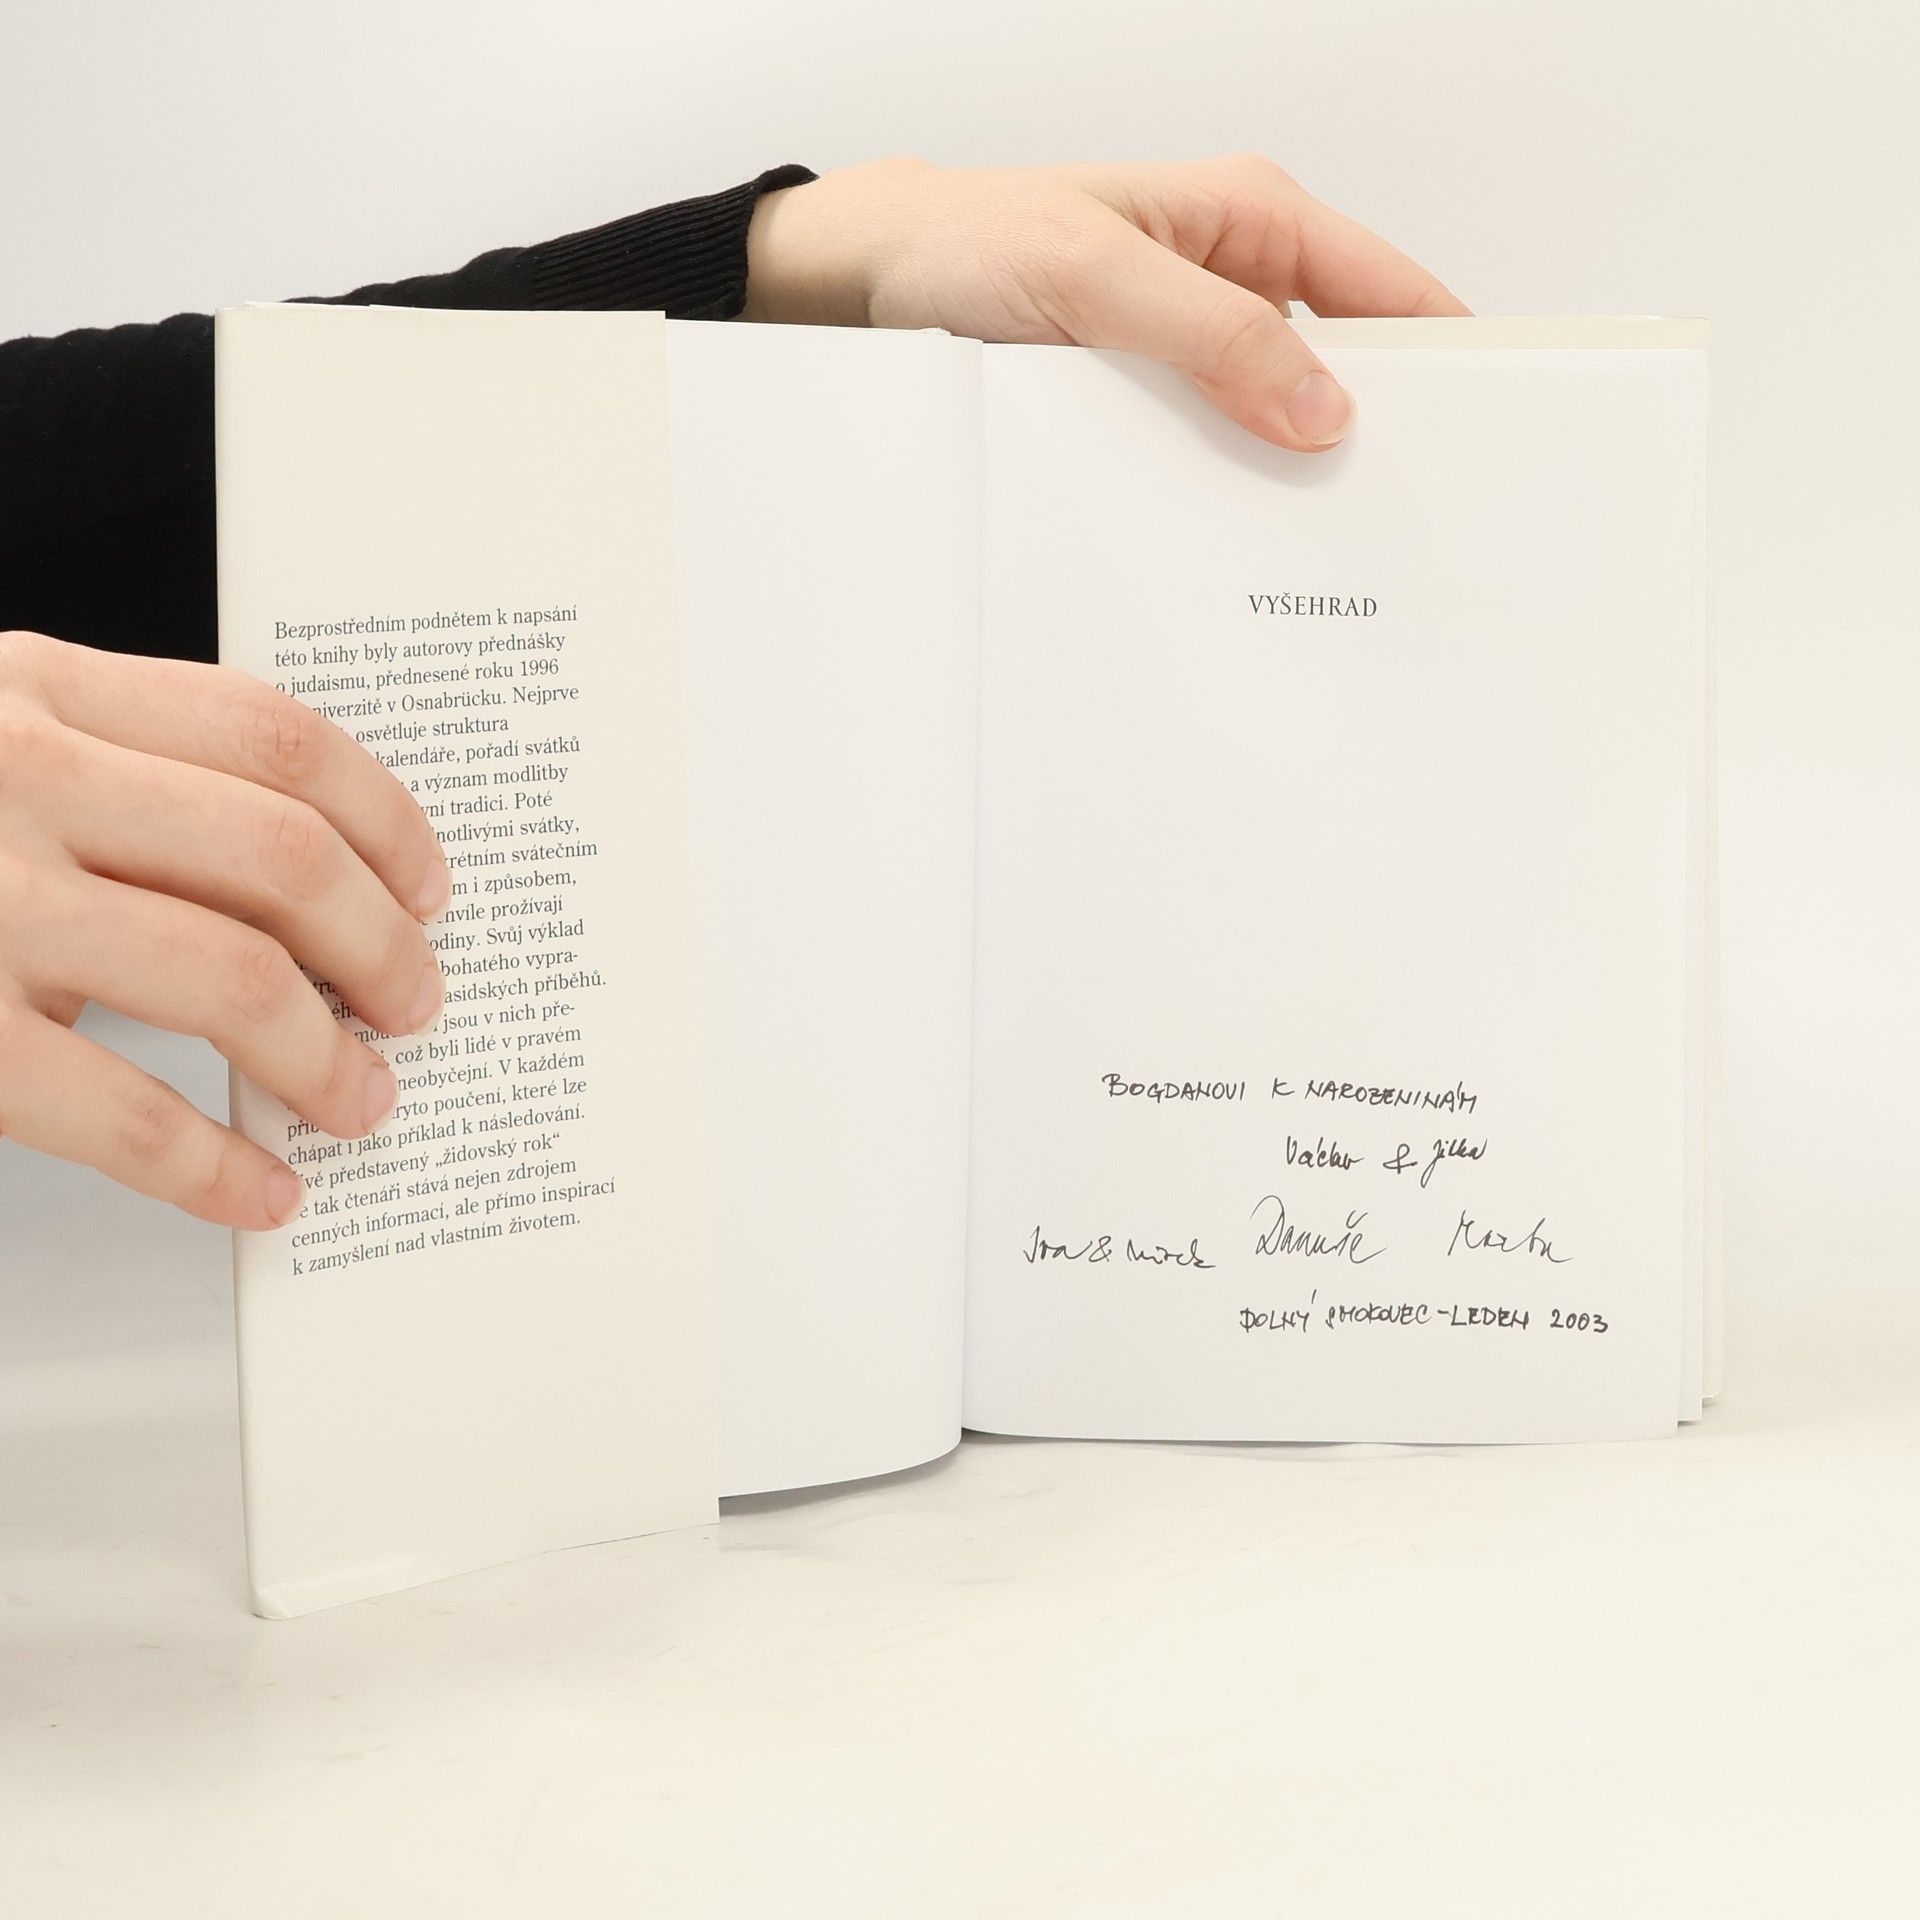 Bezprostředním podnětem k napsání
této knihy byly autorovy přednášky
o judaismu, přednesené roku 1996
v Osnabrücku. Nejprve
osvětluje struktura
kalendáře, pořadí svátků
a význam modlitby
tradici. Poté
svátky,
svátečním
i způsobem,
prožívají
Svůj výklad
bohatého vypra-
příběhů.
jsou v nich pře-
což byli lidé v pravém
neobyčejní. V každém
poučení, které lze
chápat i jako příklad k následování.
představený „židovský rok“
tak čtenáři stává nejen zdrojem
cenných informací, ale přímo inspirací
k zamyšlení nad vlastním životem.
VYŠEHRAD
BOGDANOVI K NAROZENINÁM
Václav & Jitka
Iva & Mirek Danuše
DOLNÝ SMOKOVEC - LEDEN 2003